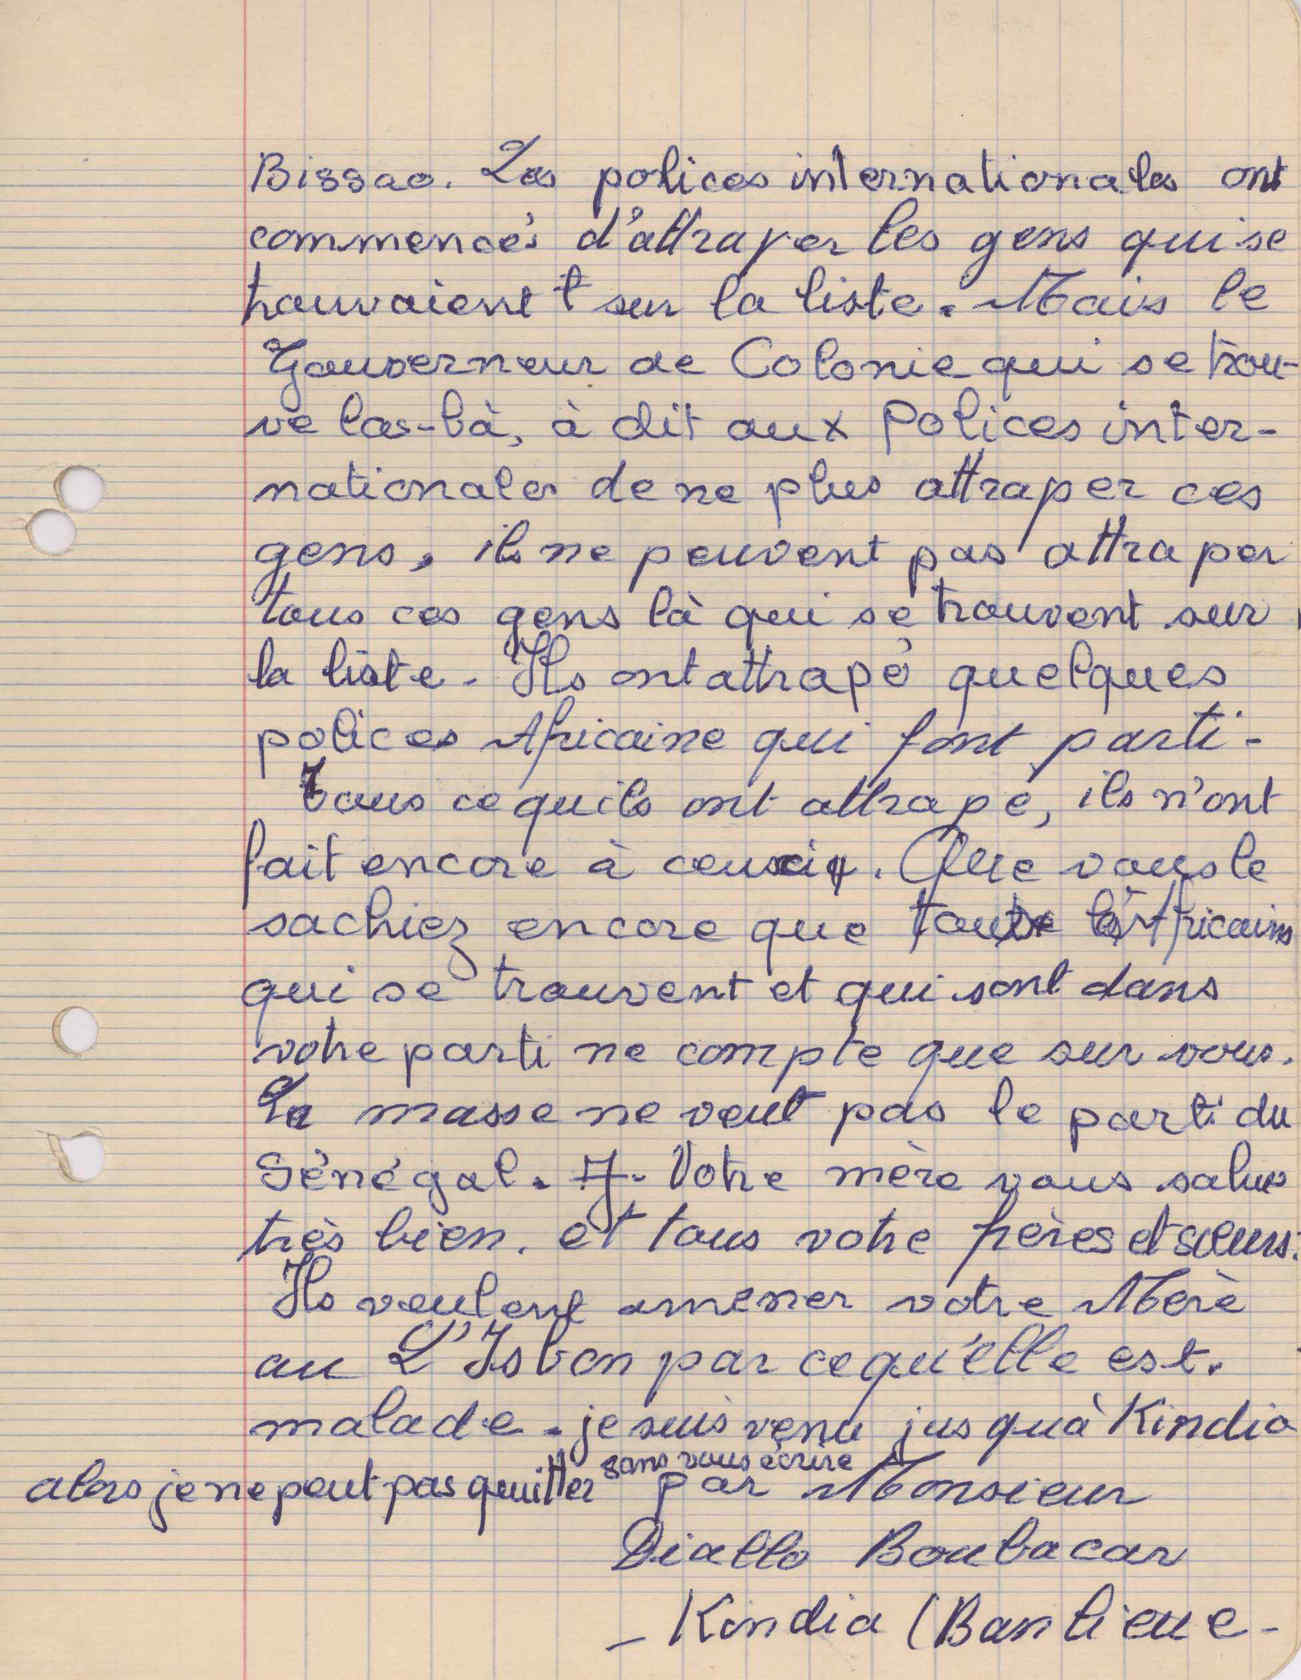 Bissao. Les polices internationales ont
commencés d'attraper les gens qui se
trouvaient sur la liste. Mais le
Gouverneur de Colonie qui se trou-
ve las-bà, à dit aux Polices inter-
nationales de ne plus attraper ces
gens, ils ne peuvent pas attraper
tous ces gens là qui se trouvent sur
la liste. Ils ont attrapé quelques
polices Africaine qui font parti-
Tous ce qu'ils ont attrapé, ils n'ont
fait encore à ceux. Que vous le
sachiez encore que les Africains
qui se trouvent et qui sont dans
votre parti ne compte que sur vous.
La masse ne veut pas le parti du
Sénégal. Votre mère vous salue
très bien. et tous votre frères et sœurs.
Ils veulent amener votre Mère
au L'Isbon par ce qu'elle est.
malade. je suis venu jusquà Kindia
alors je ne peut pas quitter sans vous écrire par Monsieur
Diallo Boubacar
- Kindia (Banlieue -